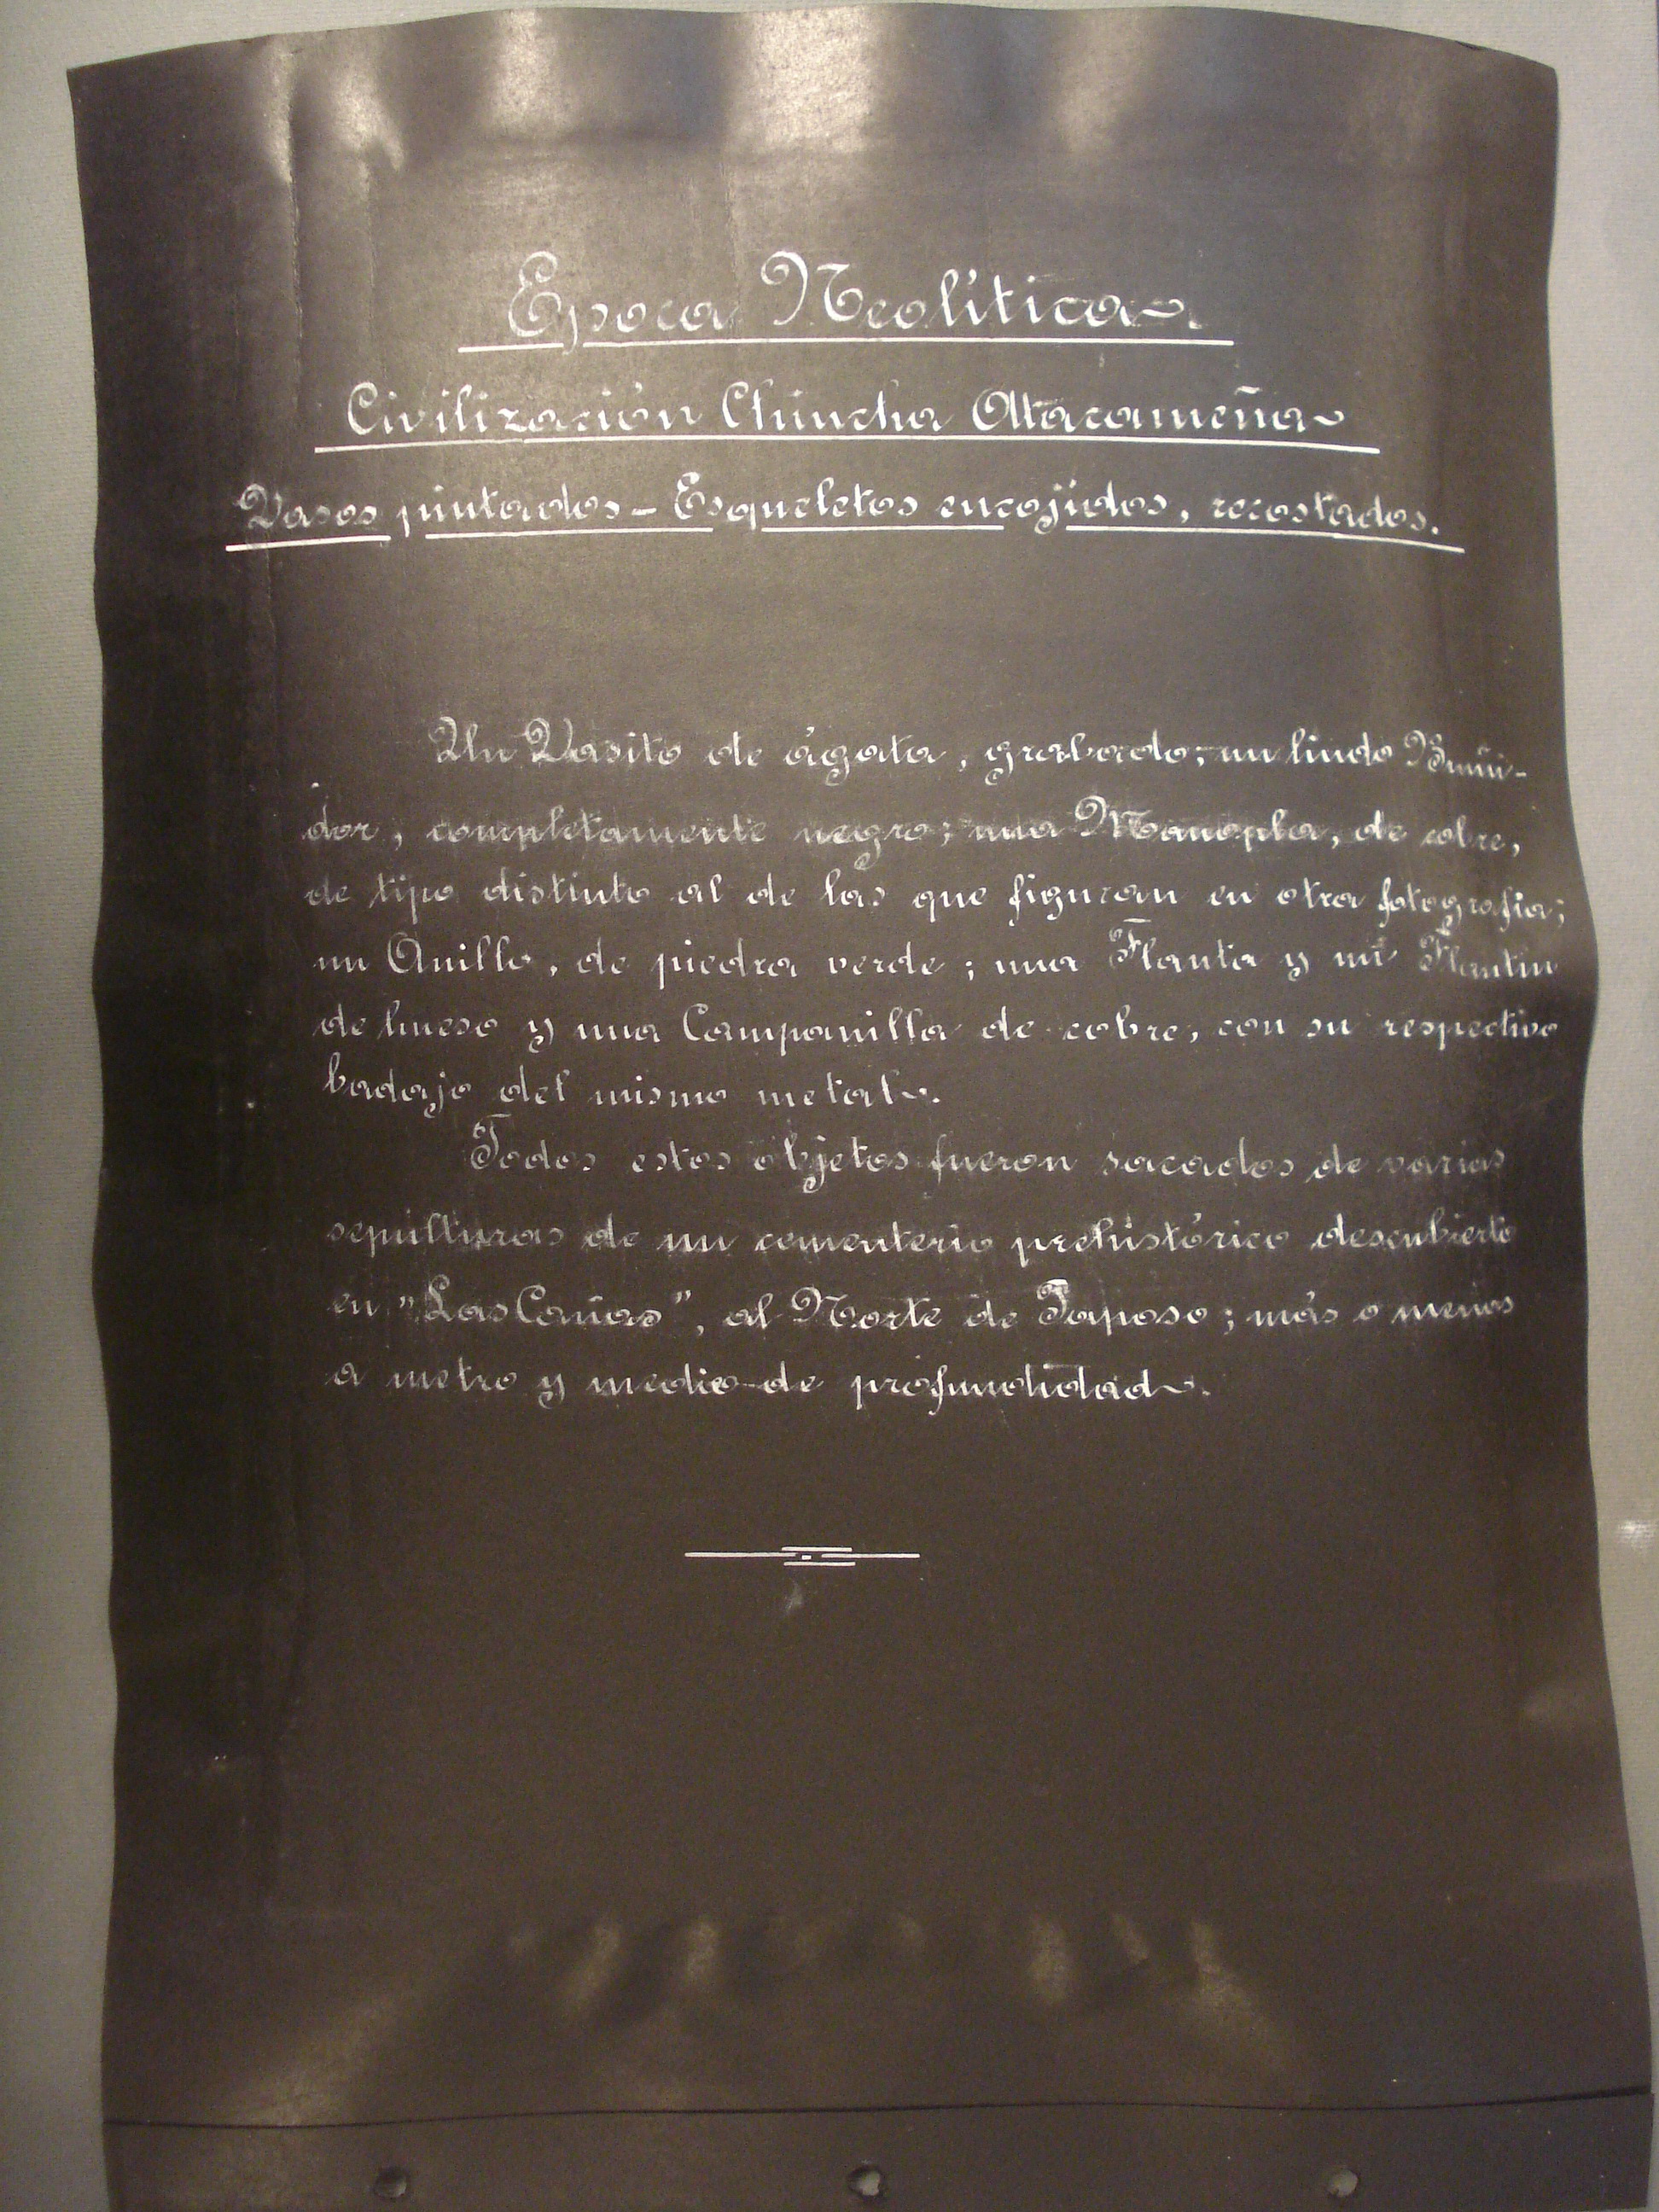 Epoca Neolítica.
Civilización Chincha Atacameña
Vasos pintados - Esqueletos encojidos, recostados.
Un Vasito de ágata, grabado; un lindo Bruñi-
dor, completamente negro; una Manopla, de cobre,
de tipo distinto al de las que figuran en otra fotografia;
un Anillo, de piedra verde; una Flauta y un Flautin
de hueso y una Campanilla de cobre, con su respectivo
badajo del mismo metal.
Todos estos objetos fueron sacados de varias
sepulturas de un cementerio prehistórico descubierto
en "Las Cañas", al Norte de Paposo; más o menos
a metro y medio de profundidad.